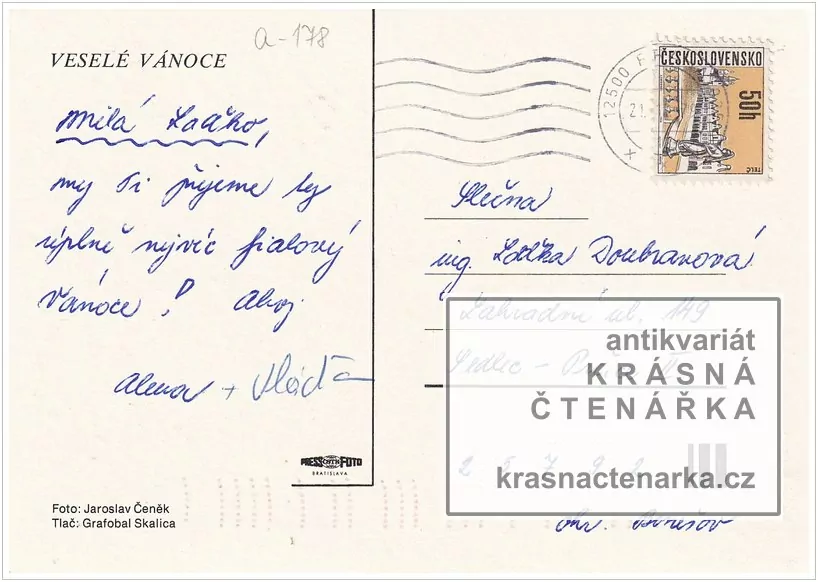 a-178
VESELÉ VÁNOCE
Milá Laďko,
my Ti přejeme ty
úplně nejvíc fialový
Vánoce! Ahoj
Alena + Vláďa
PRESSFOTO
BRATISLAVA
Foto: Jaroslav Čeněk
Tlač: Grafobal Skalica
12500
21.
ČESKOSLOVENSKO
50h
TELČ
Slečna
ing. Laďka Doubravová
Zahradní ul. 149
Sedlec -
antikvariát
KRÁSNÁ
ČTENÁŘKA
krasnactenarka.cz
okr. Benešov